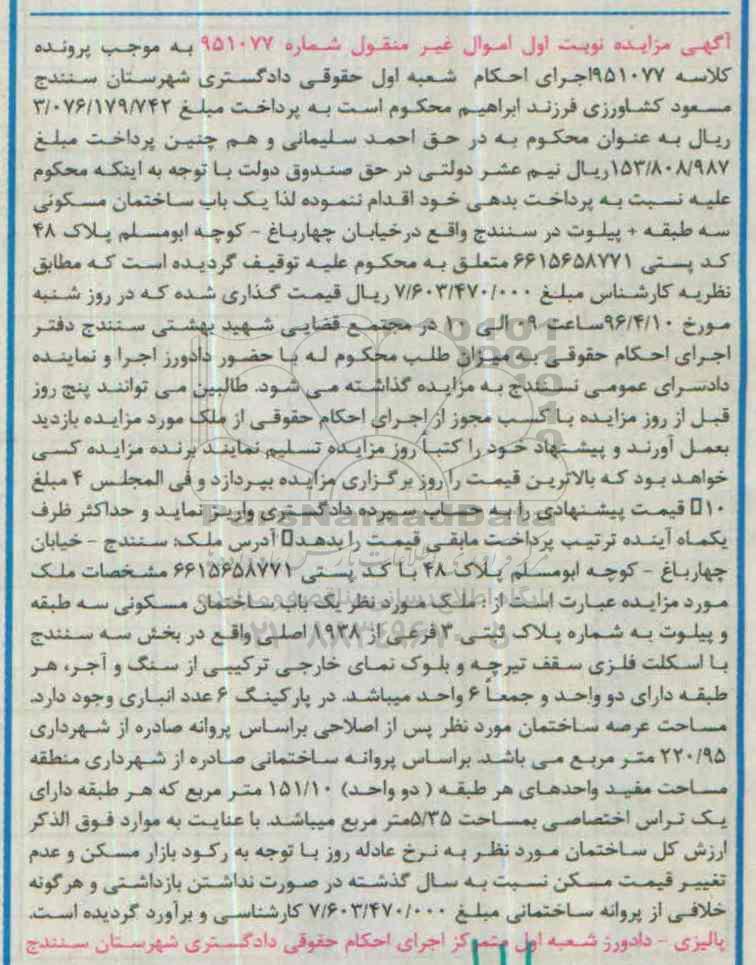 آگهی مزایده نوبت اول اموال غیر منقول شماره ۹۵۱۰۷۷ به موجب پرونده
کلاسه ۹۵۱۰۷۷اجرای احکام شعبه اول حقوقی دادگستری شهرستان سنندج
مسعود کشاورزی فرزند ابراهیم محکوم است به پرداخت مبلغ ۳/۰۷۶/۱۷۹/۷۴۲
ریال به عنوان محکوم به در حق احمد سلیمانی و هم چنین پرداخت مبلغ
۱۵۳/۸۰۸/۹۸۷ریال نیم عشر دولتی در حق صندوق دولت با توجه به اینکه محکوم
علیه نسبت به پرداخت بدهی خود اقدام ننموده لذا یک باب ساختمان مسکونی
سه طبقه + پیلوت در سنندج واقع درخیابان چهارباغ - کوچه ابومسلم پلاک ۴۸
کد پستی ۶۶۱۵۶۵۸۷۷۱ متعلق به محکوم علیه توقیف گردیده است که مطابق
نظریه کارشناس مبلغ ۷/۶۰۳/۴۷۰/۰۰۰ ریال قیمت گذاری شده که در روز شنبه
مورخ ۹۶/۴/۱۰ساعت ۰۹ الی ۱۰ در مجتمع قضایی شهید بهشتی سنندج دفتر
اجرای احکام حقوقی به میزان طلب محکوم له با حضور دادورز اجرا و نماینده
دادسرای عمومی نسنندج به مزایده گذاشته می شود. طالبین می توانند پنج روز
قبل از روز مزایده با کسب مجوز از اجرای احکام حقوقی از ملک مورد مزایده بازدید
بعمل آورند و پیشنهاد خود را کتباً روز مزایده تسلیم نمایند برنده مزایده کسی
خواهد بود که بالاترین قیمت را روز برگزاری مزایده بپردازد و فی المجلس ۴ مبلغ
۱۰ قیمت پیشنهادی را به حساب سپرده دادگستری واریز نماید و حداکثر ظرف
یکماه آینده ترتیب پرداخت مابقی قیمت را بدهد آدرس ملک: سنندج - خیابان
چهارباغ - کوچه ابومسلم پلاک ۴۸ با کد پستی ۶۶۱۵۶۵۸۷۷۱ مشخصات ملک
مورد مزایده عبارت است از : ملک مورد نظر یک باب ساختمان مسکونی سه طبقه
و پیلوت به شماره پلاک ثبتی ۳ فرعی از ۱۹۳۸ اصلی واقع در بخش سه سنندج
با اسکلت فلزی سقف تیرچه و بلوک نمای خارجی ترکیبی از سنگ و آجر، هر
طبقه دارای دو واحد و جمعاً ۶ واحد میباشد. در پارکینگ ۶ عدد انباری وجود دارد.
مساحت عرصه ساختمان مورد نظر پس از اصلاحی براساس پروانه صادره از شهرداری
۲۲۰/۹۵ متر مربع می باشد. براساس پروانه ساختمانی صادره از شهرداری منطقه
مساحت مفید واحدهای هر طبقه ( دو واحد) ۱۵۱/۱۰ متر مربع که هر طبقه دارای
یک تراس اختصاصی بمساحت ۵/۳۵متر مربع میباشد. با عنایت به موارد فوق الذکر
ارزش کل ساختمان مورد نظر به نرخ عادله روز با توجه به رکود بازار مسکن و عدم
تغییر قیمت مسکن نسبت به سال گذشته در صورت نداشتن بازداشتی و هرگونه
خلافی از پروانه ساختمانی مبلغ ۷/۶۰۳/۴۷۰/۰۰۰ کارشناسی و برآورد گردیده است.
پالیزی - دادورز شعبه اول متمرکز اجرای احکام حقوقی دادگستری شهرستان سنندج
ParsNamadData